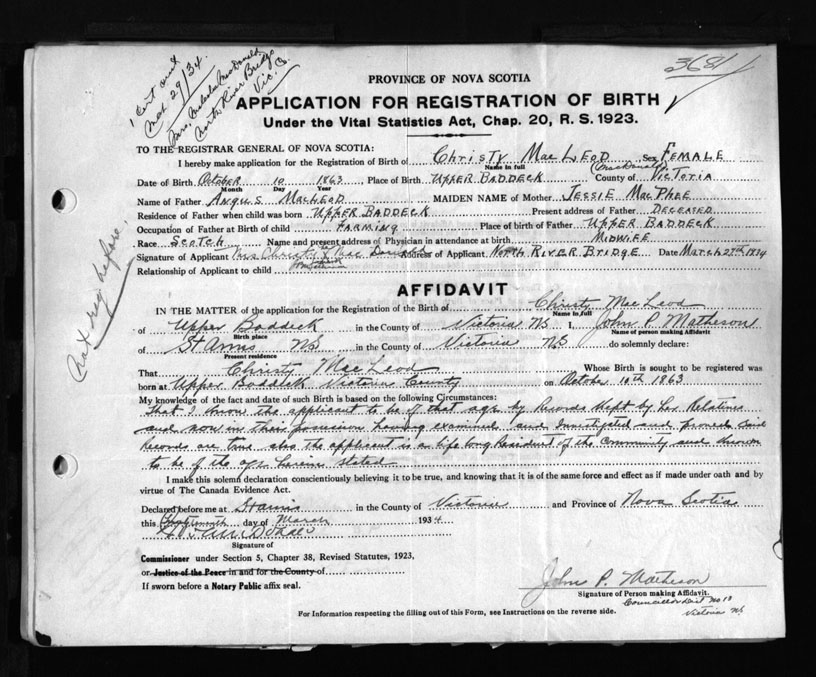 1 Cert. sent
Mar. 29/34
Mrs. Malcolm McDonald
North River Bridge
Vic. Co.
3681
PROVINCE OF NOVA SCOTIA
APPLICATION FOR REGISTRATION OF BIRTH
Under the Vital Statistics Act, Chap. 20, R. S. 1923.
TO THE REGISTRAR GENERAL OF NOVA SCOTIA:
I hereby make application for the Registration of Birth of Christy MacLeod Sex Female
Name in full (MacDonald)
Date of Birth October 10 1863 Place of Birth Upper Baddeck County of Victoria
Month Day Year
Name of Father Angus MacLeod MAIDEN NAME of Mother Jessie MacPhee
Residence of Father when child was born Upper Baddeck Present address of Father Deceased
Occupation of Father at Birth of child Farming Place of birth of Father Upper Baddeck
Race Scotch Name and present address of Physician in attendance at birth Midwife
Signature of Applicant Mrs Christy MacDonald Address of Applicant North River Bridge Date March 27th 1934
Relationship of Applicant to child
Not reg. before.
AFFIDAVIT
IN THE MATTER of the application for the Registration of the Birth of Christy MacLeod
Name in full
of Upper Baddeck in the County of Victoria NS I, John P. Matheson
Birth place Name of person making Affidavit
of St Anns NS in the County of Victoria NS do solemnly declare:
Present residence
That Christy MacLeod Whose Birth is sought to be registered was
born at Upper Baddeck Victoria County on October 10th 1863
My knowledge of the fact and date of such Birth is based on the following Circumstances:
That I know the applicant to be of that age by Records kept by her Relatives
and now in their possession having examined and Investigated and proved said
Records are true also the applicant is a life long Resident of the Community and known
to be of the age herein stated
I make this solemn declaration conscientiously believing it to be true, and knowing that it is of the same force and effect as if made under oath and by
virtue of The Canada Evidence Act.
Declared before me at St Anns in the County of Victoria and Province of Nova Scotia
this day of March 1934
Signature of
Commissioner under Section 5, Chapter 38, Revised Statutes, 1923,
or Justice of the Peace in and for the County of
If sworn before a Notary Public affix seal.
John P. Matheson
Signature of Person making Affidavit.
Councillor Dist No 13
Victoria NS
For Information respecting the filling out of this Form, see Instructions on the reverse side.